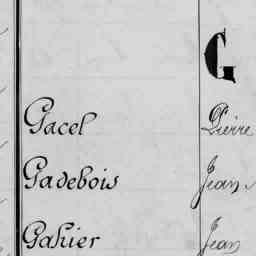 G
Gacel Pierre
Gadebois Jean
Gahier Jean